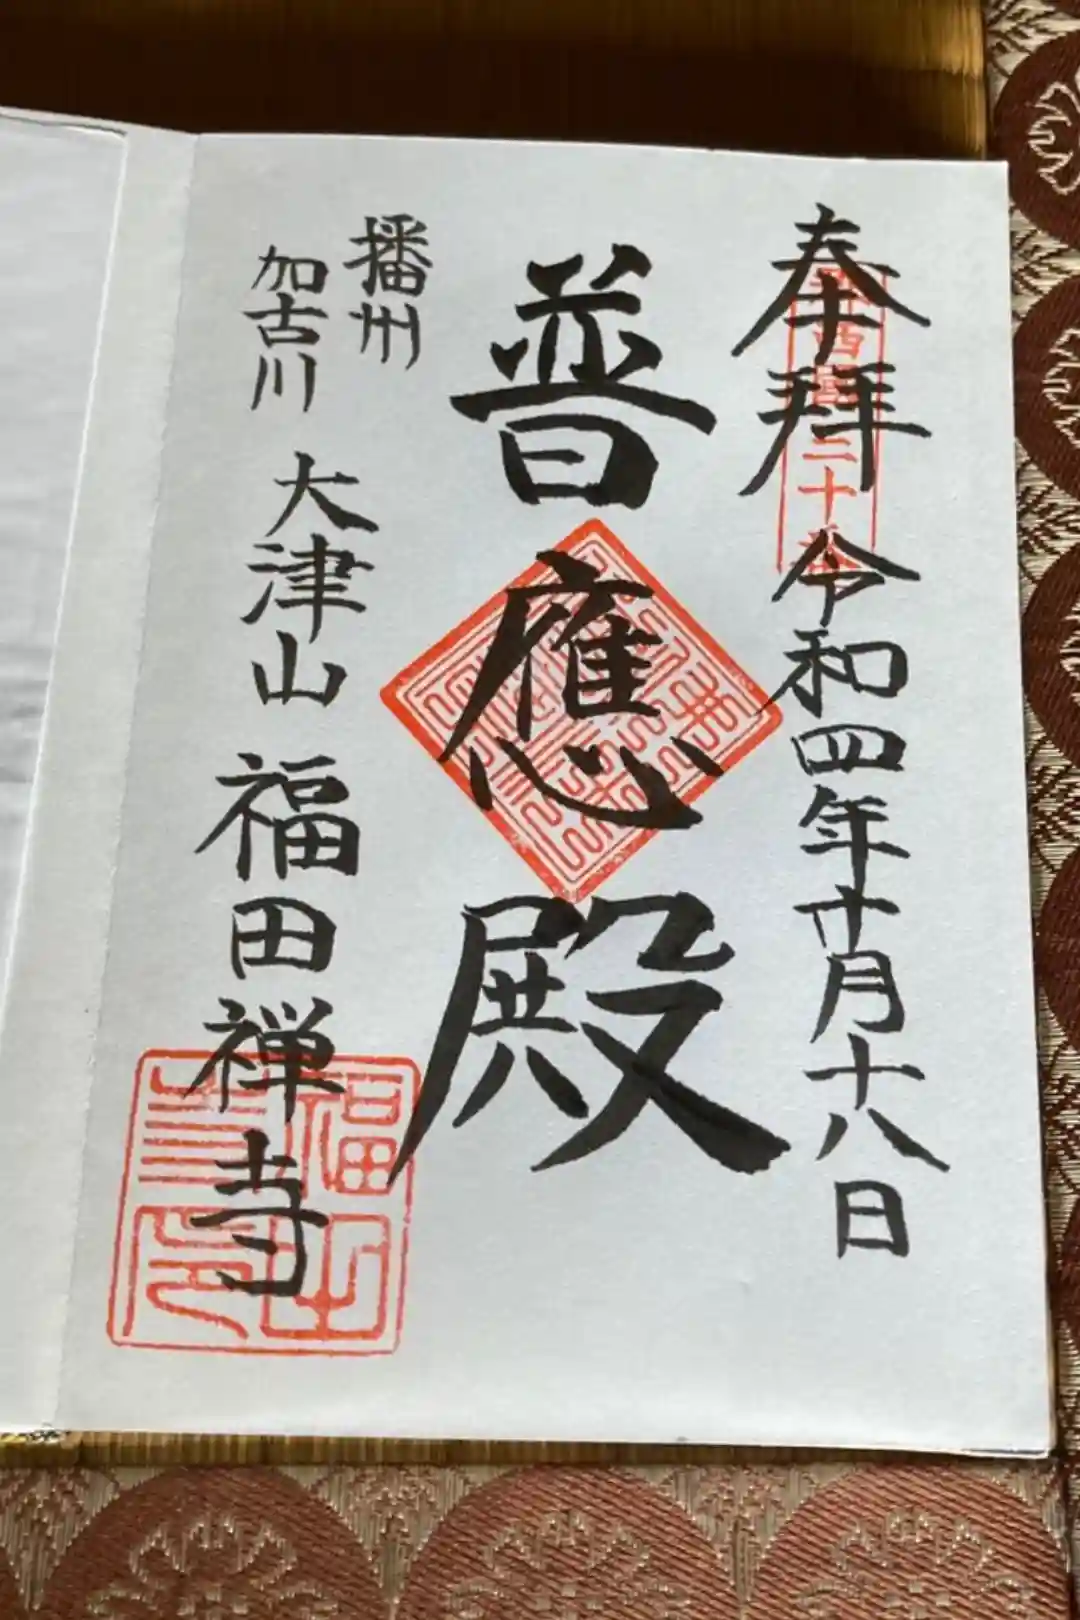 奉拝 令和四年十月十八日
二十
普應殿
播州
加古川
大津山 福田禅寺
福田寺印